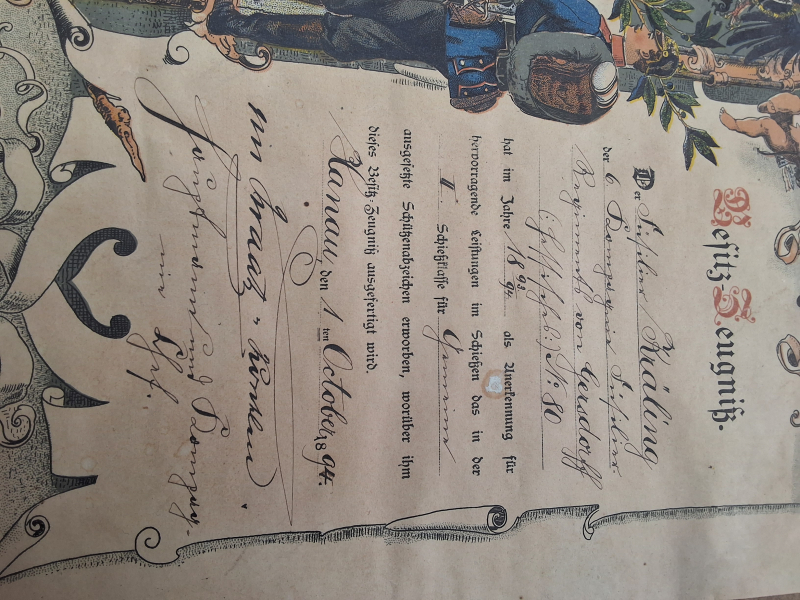 Besitz-Zeugniß.
Der Füsilier Mäling
der 6. Kompagnie Füsilier
Regiments von Gersdorff
(Hessisches) No. 80
hat im Jahre 18 93/94 als Anerkennung für
hervorragende Leistungen im Schießen das in der
II. Schießklasse für Gemeine
ausgesetzte Schützenabzeichen erworben, worüber ihm
dieses Besitz-Zeugniß ausgefertigt wird.
Hanau, den 1ten October 1894.
von
Hauptmann und Kompag-
nie Chef.